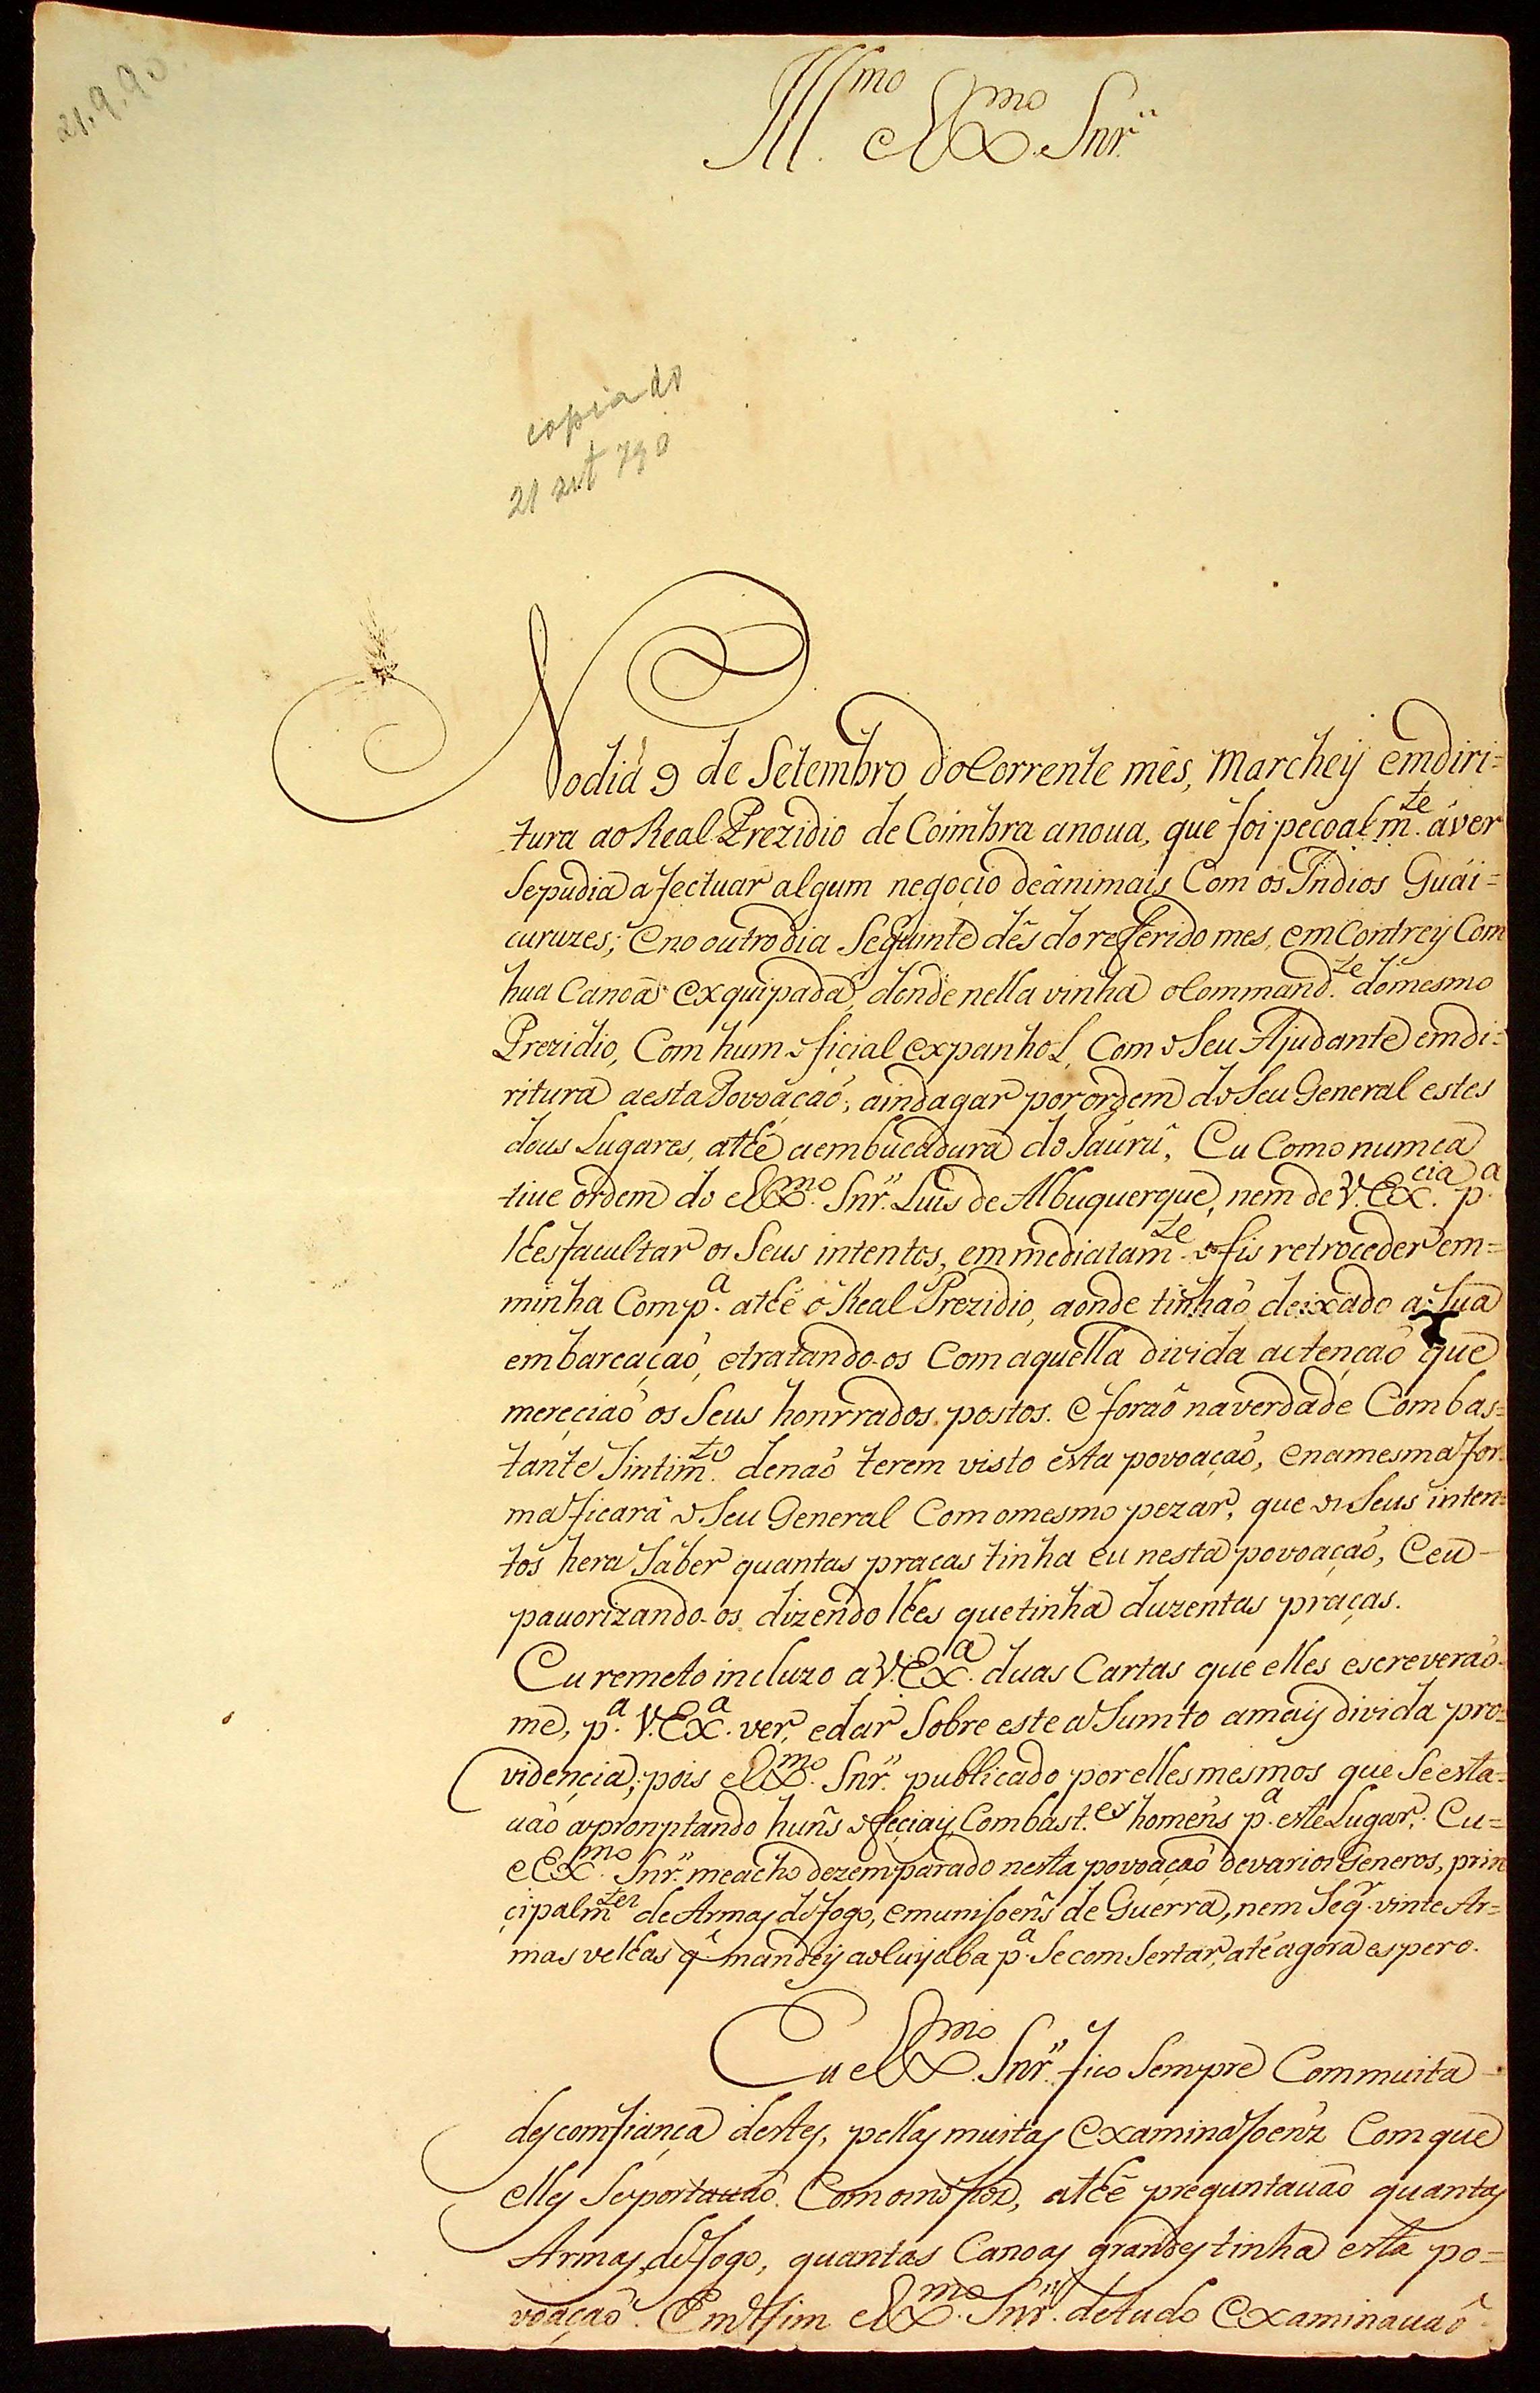 21.9.90
Ill.mo e Ex.mo Snr.
copiado
21 set 790
No dia 9 de Setembro do Corrente mês, Marchey emdiri=
tura ao Real Prezidio de Coimbra a noua, que foi peçoalm.te áver
Sepudia afectuar algum negoçio deânimais Com os Indios Guái=
curuzes; e no outro dia Seguinte dês do refferido mes, emContrey Com
hua Canoâ exquipada, donde nella vinha oCommand.te domesmo
Prezidio, Com hum oficial expanhol, Com o Seu Ajudante emdi=
ritura aesta Povoaçaõ; aindagar porordem do Seu General estes
dous Lugares, athé aembucadura do Jáurú, Eu Como numca
tiue ordem do Ex.mo Snr. Luis de Albuquerque, nem de V. Ex.cia p.a
lhesfacultar os Seus intentos, emmediatam.te os fis retroceder em=
minha Comp.a athé o Real Prezidio, aonde tinhaõ deixado a Sua
embarcaçaõ, etratando-os Com aquella divida actençaõ que
mereçiaõ os Seus honrrados postos. e foraõ naverdade Combas=
tante Sintim.to denaõ terem visto esta povoaçaõ, enamesma for=
ma ficará o Seu General Com omesmo pezar, que os Seus inten=
tos hera Saber quantas praças tinha eu nesta povoaçaõ, Eeu-
pauorizando-os dizendo lhes quetinha duzentas praças.
Eu remeto incluzo a V. Ex.a duas Cartas que elles escreveraõ-
me, p.a V. Ex.a ver, edar Sobre este aSumto amaiy divida pro=
vidençia; pois Ex.mo Snr. publicado porellesmesmos que Seesta=
uaõ apronptando huñs ofeçiaiy Combast.es homéns p.a este Lugar, Eu=
e Ex.mo Snr. meacho dezemparado nesta povoaçaõ devarios Generos, prin
çipalm.ten de Armas de fogo, emunisoeñs de Guerra, nem Seq.r vinte Ar=
mas velhas q. mandey aoCuyaba p.a Secomsertar, até agora espero.
Eu e Ex.mo Snr. fico Sempre Commuita
descomfiança destes, pellas muitas examinasoens Comque
elles Seportauaõ. Comomo foi, athé preguntauaõ quantas
Armas de fogo, quantas Canoas grandes tinha esta po=
voaçaõ. Emfim Ex.mo Snr. detudo examinauaõ